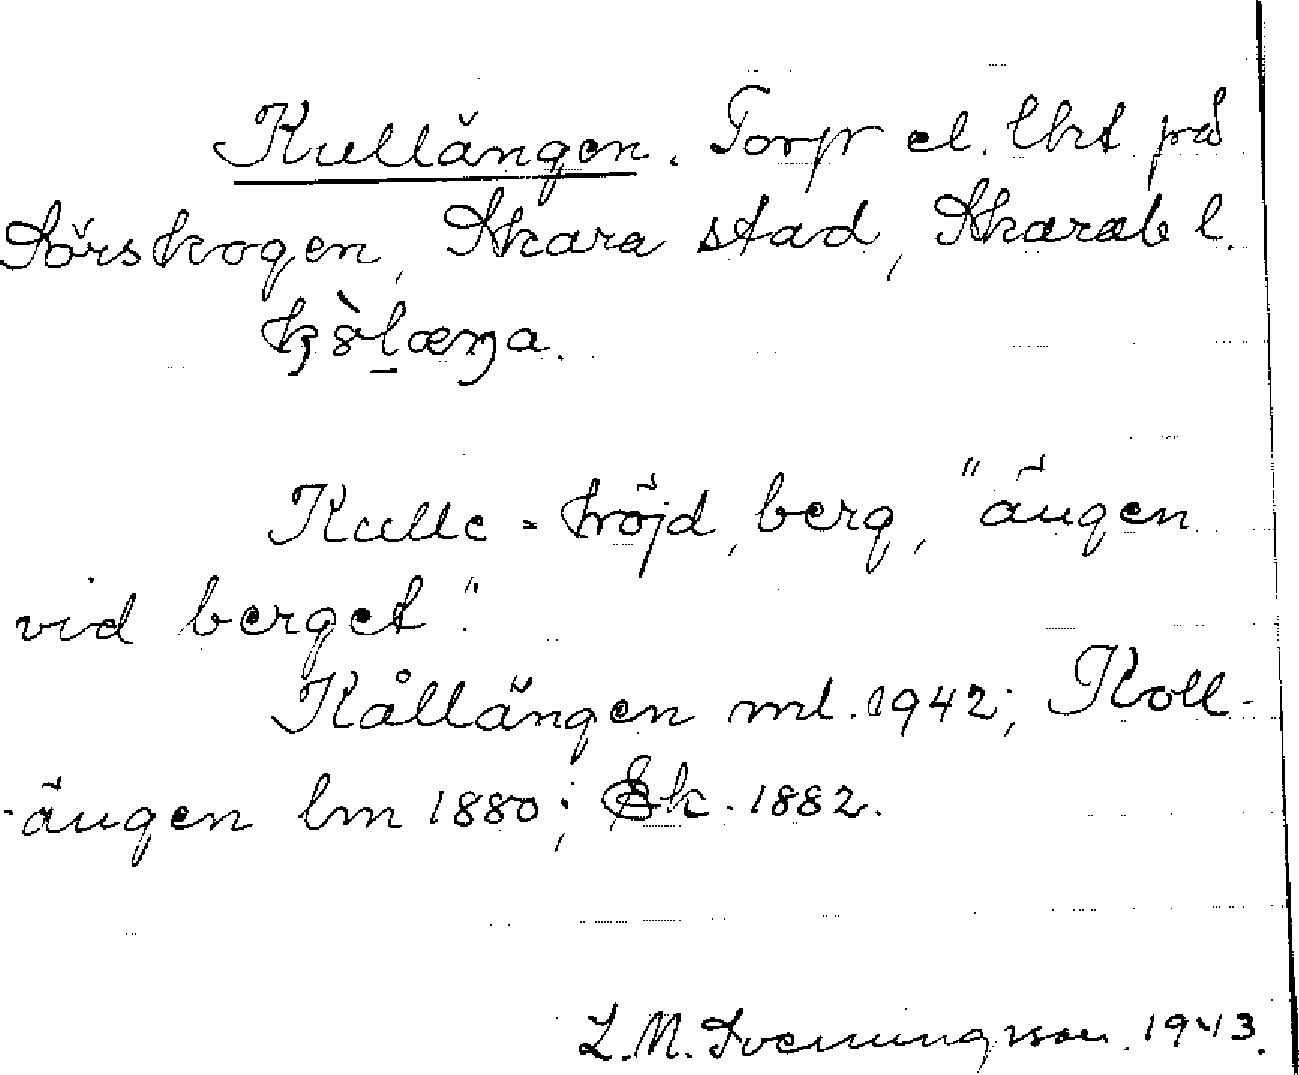 Kullängen. Torp el. lht på
Sörskogen, Skara stad, Skarab l.
Kulle = höjd, berg, "ängen
vid berget".
Kållängen ml. 1942; Koll-
-ängen lm 1880; Ek. 1882.
L. M. Svenungsson. 1943.